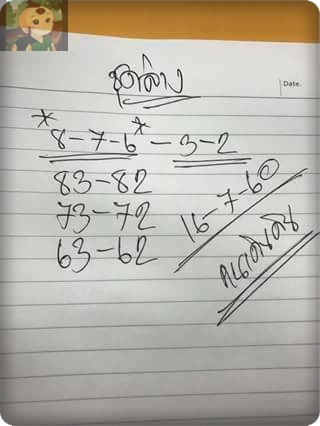 ชุดล่าง
Date.
*8-7-6* - 3-2
83-82
73-72
63-62
16-7-60
คนเดินดิน